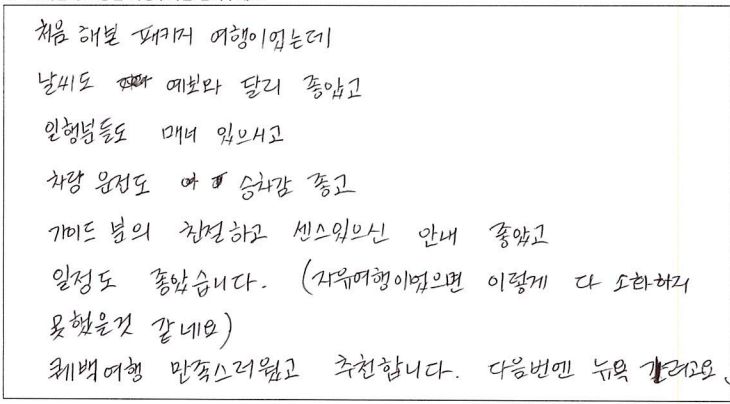 처음 해본 패키지 여행이었는데
날씨도 예보와 달리 좋았고
일행분들도 매너 있으시고
차량 운전도 승차감 좋고
가이드 분의 친절하고 센스있으신 안내 좋았고
일정도 좋았습니다. (자유여행이었으면 이렇게 다 소화하지
못했을것 같네요)
퀘백여행 만족스러웠고 추천합니다. 다음번엔 뉴욕 가려고요.